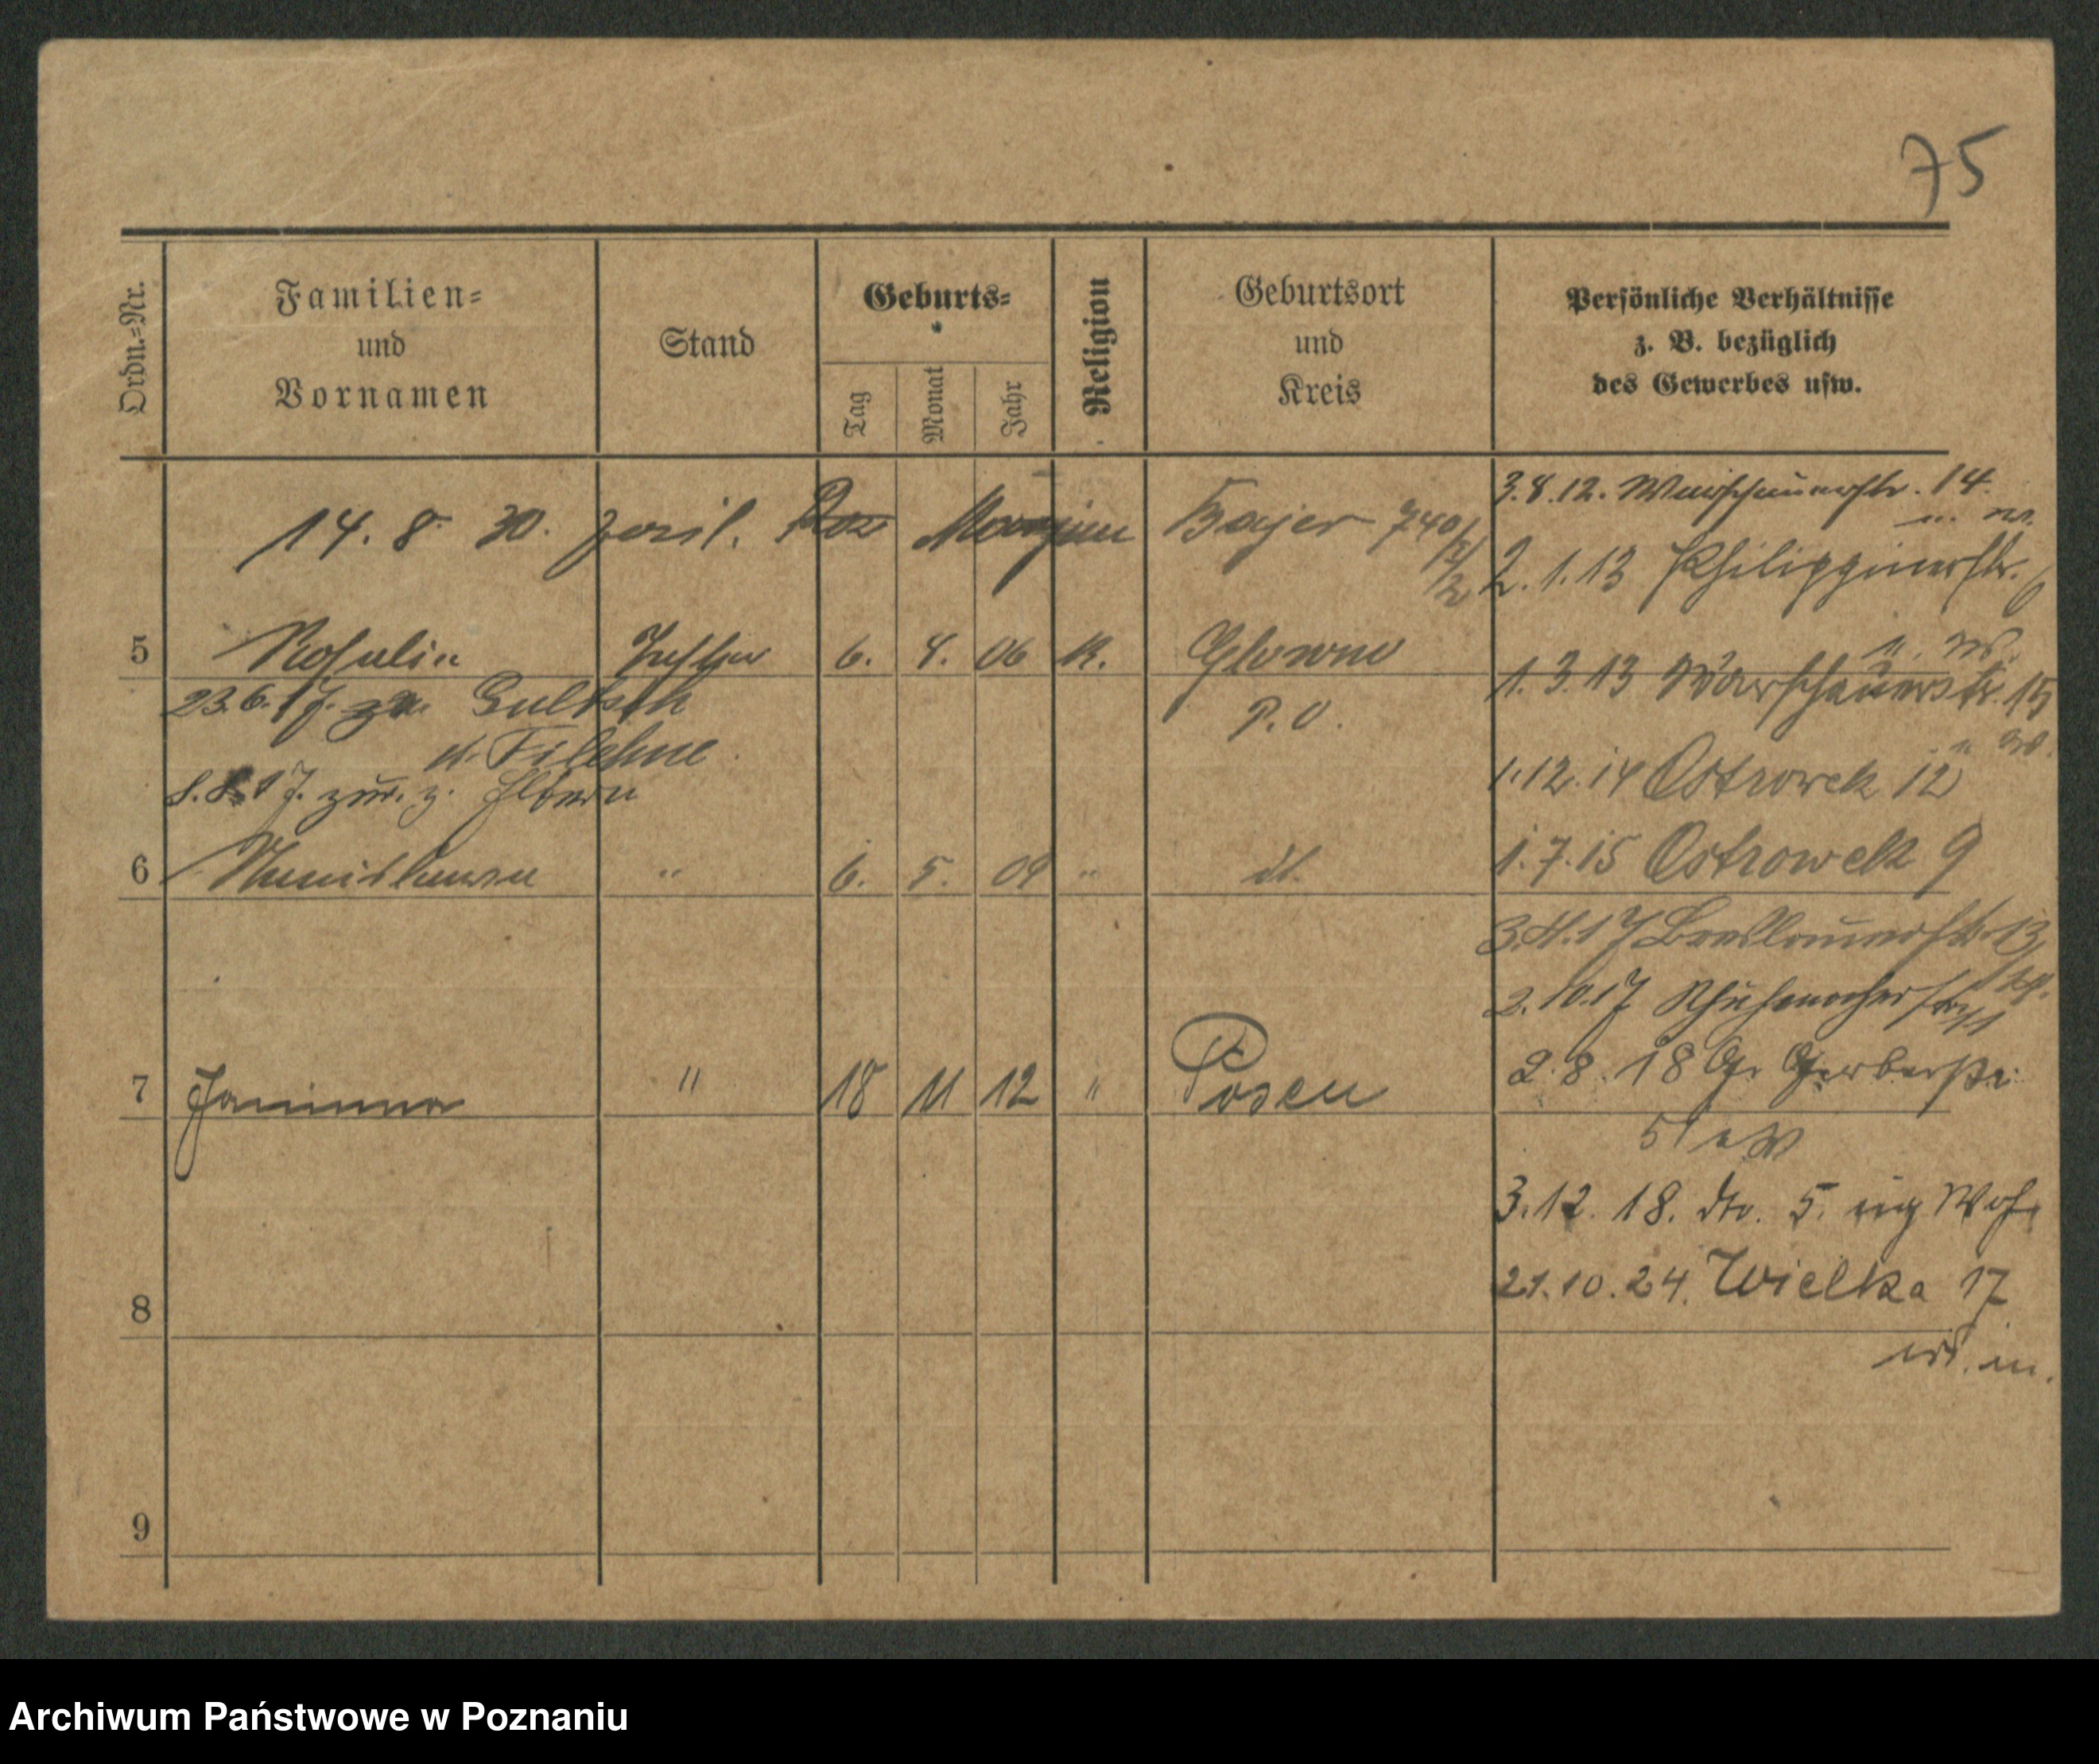 75
Ordn.=Nr.
Familien=
und
Vornamen
Stand
Geburts=
Tag
Monat
Jahr
Religion
Geburtsort
und
Kreis
Persönliche Verhältnisse
z. B. bezüglich
des Gewerbes usw.
14. 8. 30. Bajer 740/
3.8.12. Warschauerstr. 14.
2.1.13 Philippinerstr.
5 Rosalia Tochter 6. 8. 06 K. Glowno
P. O.
1.3.13 Warschauerstr. 15
23.6.17. zu Gultsch
Filehne
8.8.17. zur. z. Eltern
1.12.14 Ostrowek 12
6 Stanislawa " 6. 5. 09 " dt.
1.7.15 Ostrowek 9
3.4.17 Breslauerstr. 13
2.10.17 Schuhmacherstr. 11
7 Janina " 18 11 12 " Posen
2.8.18 Gr. Gerberstr.
51
3.12.18. dto. 5.
21.10.24. Wielka 17
8
9
Archiwum Państwowe w Poznaniu